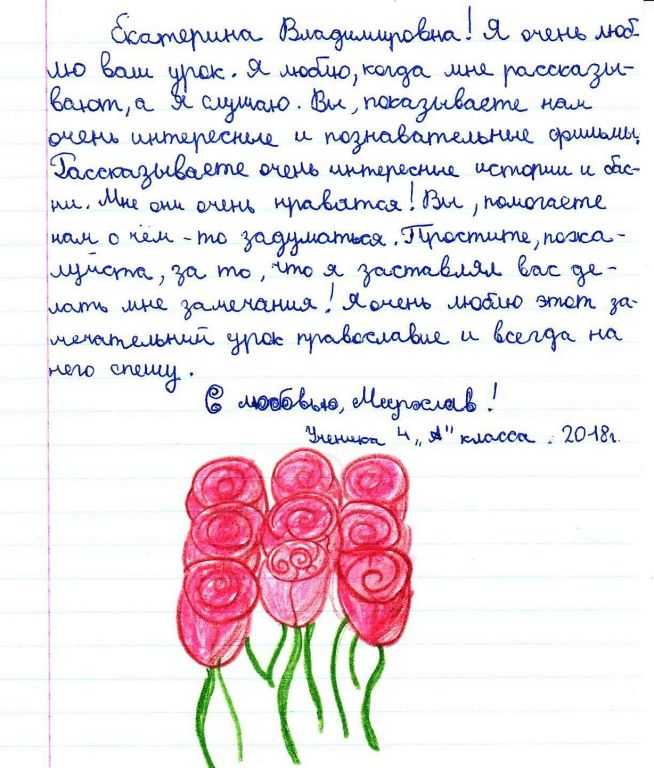 Екатерина Владимировна! Я очень люб-
лю ваш урок. Я люблю, когда мне рассказы-
вают, а я слушаю. Вы, показываете нам
очень интересные и познавательные фильмы.
Рассказываете очень интересные истории и бас-
ни. Мне они очень нравятся! Вы, помогаете
нам о чём-то задуматься. Простите, пожа-
луйста, за то, что я заставлял вас де-
лать мне замечания! Я очень люблю этот за-
мечательний урок православие и всегда на
него спешу.
С любовью, Мирослав!
Ученика 4 „А" класса. 2018г.